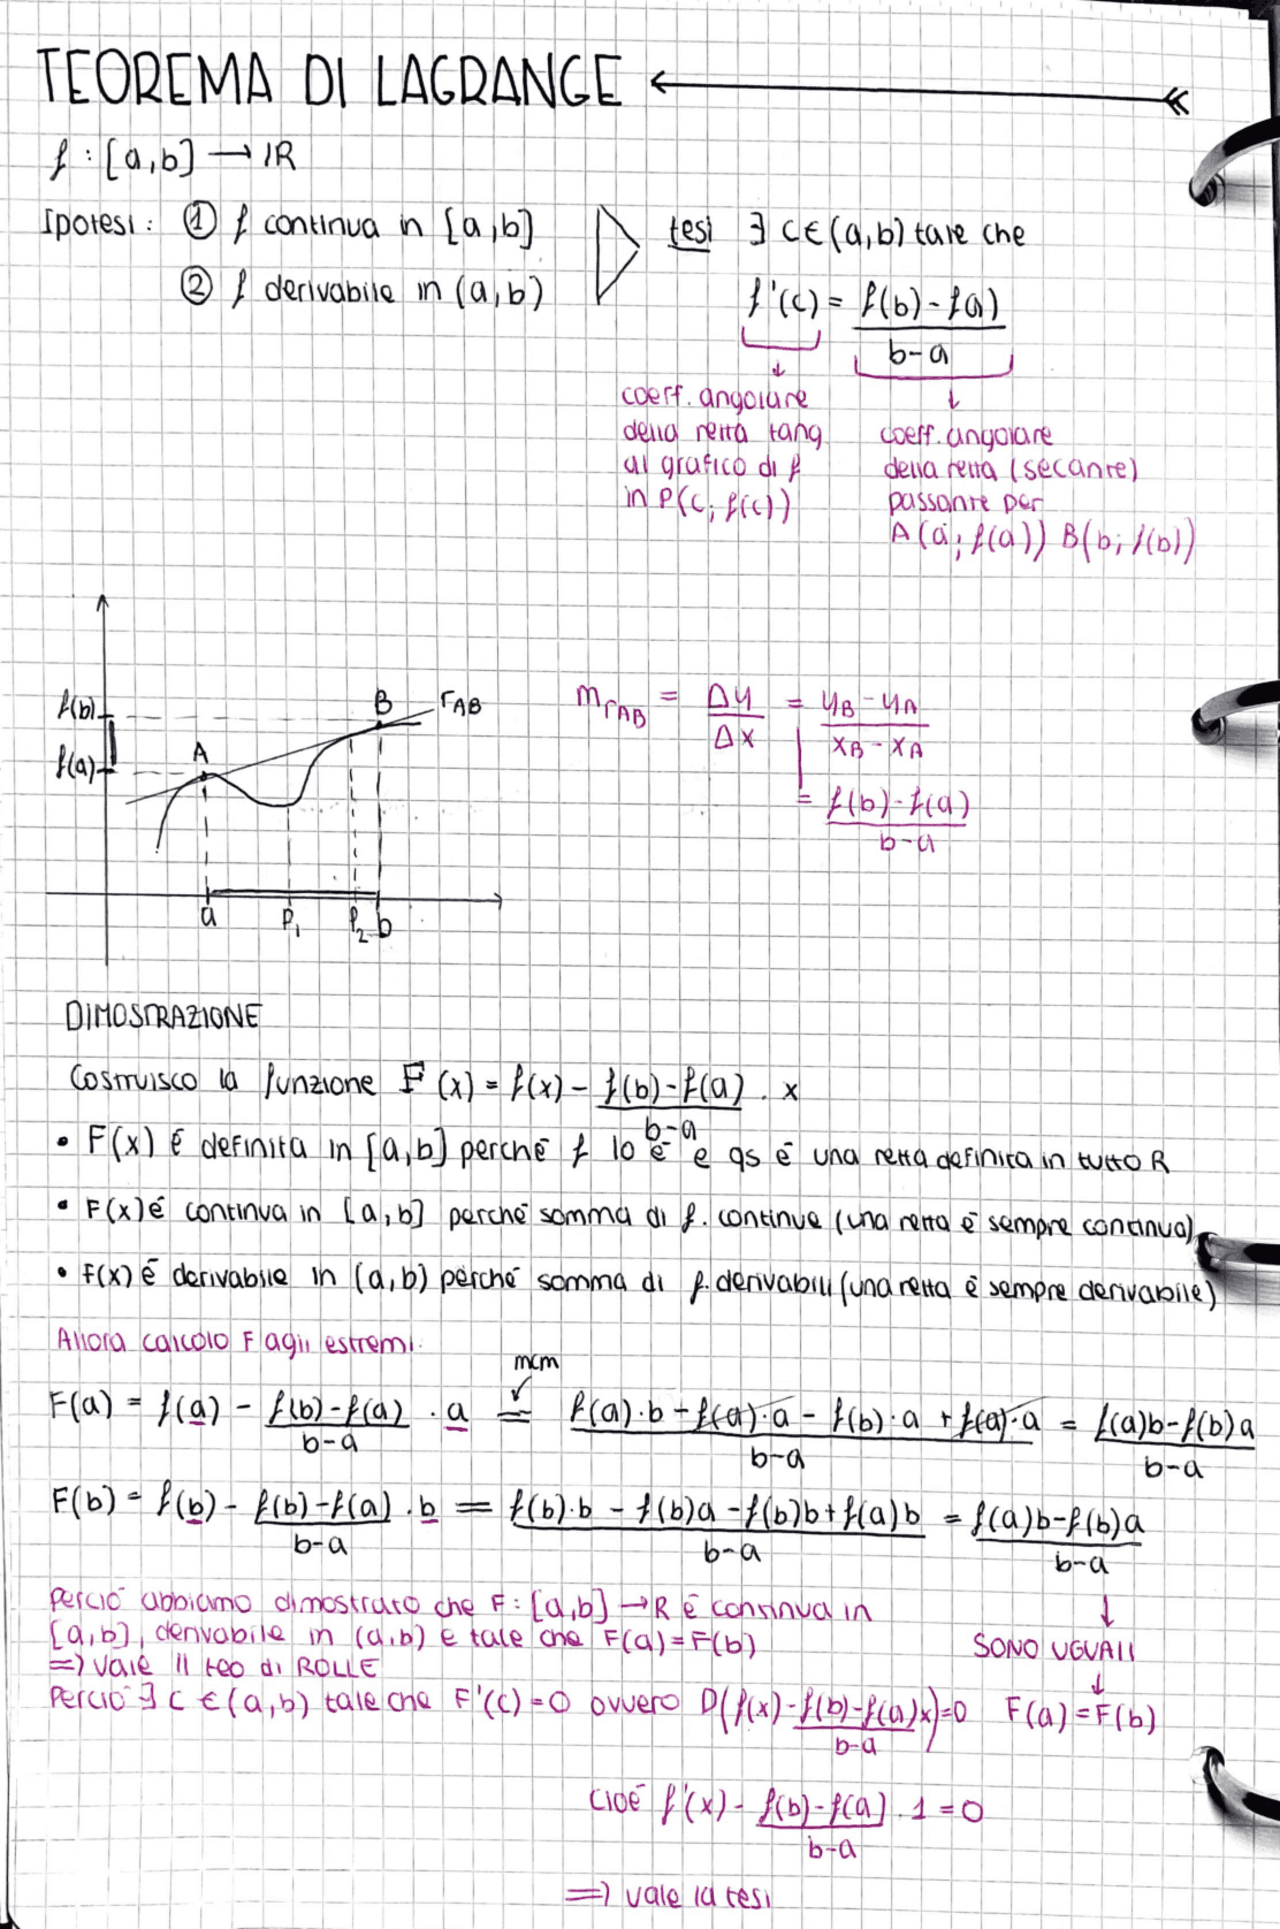 TEOREMA DI LAGRANGE
f : [a,b] → IR
Ipotesi: ① f continua in [a,b] tesi ∃ c∈(a,b) tale che
② f derivabile in (a,b) f'(c) = f(b)-f(a) / b-a
coeff. angolare
della retta tang
al grafico di f
in P(c; f(c))
coeff. angolare
della retta (secante)
passante per
A(a; f(a)) B(b; f(b))
f(b)
f(a)
A
B
rAB
a P₁ P₂ b
m rAB = Δy / Δx = yB - yA / xB - xA
= f(b)-f(a) / b-a
DIMOSTRAZIONE
Costruisco la funzione F(x) = f(x) - f(b)-f(a) / b-a · x
• F(x) è definita in [a,b] perché f lo è e qs è una retta definita in tutto R
• F(x) è continua in [a,b] perché somma di f. continue (una retta è sempre continua)
• F(x) è derivabile in (a,b) perché somma di f. derivabili (una retta è sempre derivabile)
Allora calcolo F agli estremi:
mcm
F(a) = f(a) - f(b)-f(a) / b-a · a = f(a)·b - f(a)·a - f(b)·a + f(a)·a / b-a = f(a)b-f(b)a / b-a
F(b) = f(b) - f(b)-f(a) / b-a · b = f(b)·b - f(b)a - f(b)b + f(a)b / b-a = f(a)b-f(b)a / b-a
perciò abbiamo dimostrato che F: [a,b] → R è continua in
[a,b], derivabile in (a,b) e tale che F(a)=F(b)
⇒ vale il teo di ROLLE
SONO UGUALI
Perciò ∃ c ∈ (a,b) tale che F'(c)=0 ovvero D(f(x) - f(b)-f(a) / b-a x)=0 F(a)=F(b)
cioè f'(x) - f(b)-f(a) / b-a · 1 = 0
⇒ vale la tesi